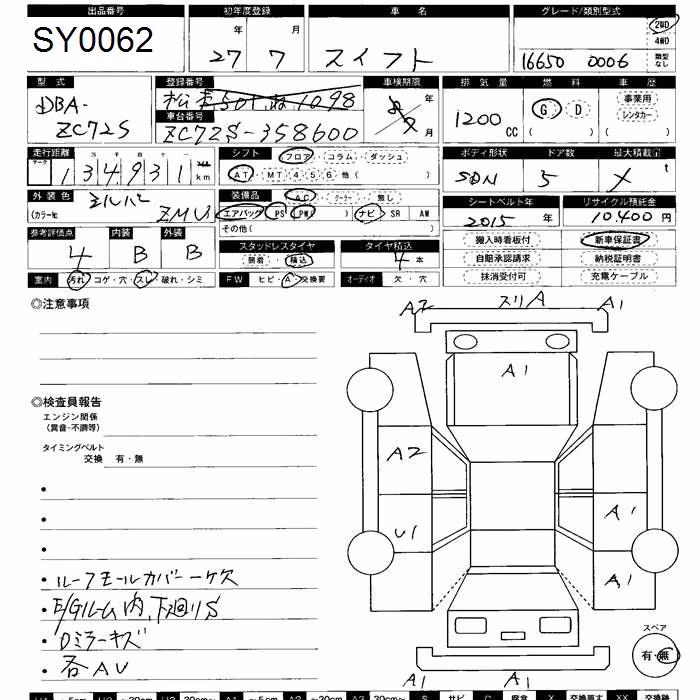 出品番号 初年度登録 車名 グレード/類別型式
SY0062 27年 7月 スイフト 16650 0006 2WD
4WD
類型なし
型式 登録番号 車検期限 排気量 燃料 車歴
DBA-
ZC72S
車台番号 年 月
ZC72S-358600
1200 CC G D ( ) 事業用 レンタカー ( )
走行距離 シフト ボディ形状 ドア数 最大積載量
マーク 十 万 千 百 十 一 マイル
134931 km
フロア・コラム・ダッシュ
AT・MT 4 5 6 他( )
SDN 5 t
外装色 シルバー
(カラーNo ZMU)
装備品 AC・クーラー・無し
エアバッグ PS PW( ) ナビ SR AW
その他( )
シートベルト年 リサイクル預託金
2015年 10,400円
参考評価点 内装 外装
4 B B
スタッドレスタイヤ タイヤ積込
装着・積込 4本
搬入時看板付 新車保証書
自賠承認請求 納税証明書
抹消受付可 充電ケーブル
室内 汚れ・コゲ・穴・スレ・破れ・シミ FW ヒビ・A・交換要 オーディオ 欠・穴
◎注意事項
A2 スリA A1
A1
◎検査員報告
エンジン関係
(異音・不調等)
タイミングベルト
交換 有・無
A2
U1 A1
A1
・ルーフモールカバー一ケ欠
・E/Gルーム内、下廻りS
・Dミラーキズ
・各AU
スペア
有・無
A1 A1